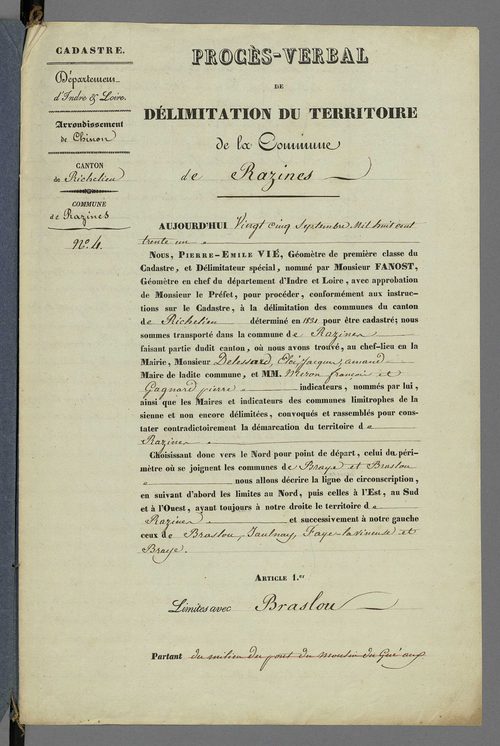 CADASTRE.
Département
d'Indre & Loire.
Arrondissement
de Chinon
CANTON
de Richelieu
COMMUNE
de Razines
N° 4.
PROCÈS-VERBAL
DE
DÉLIMITATION DU TERRITOIRE
de la Commune
de Razines
AUJOURD'HUI Vingt cinq Septembre Mil huit cent
trente un
Nous, PIERRE-EMILE VIÉ, Géomètre de première classe du
Cadastre, et Délimitateur spécial, nommé par Monsieur FANOST,
Géomètre en chef du département d'Indre et Loire, avec approbation
de Monsieur le Préfet, pour procéder, conformément aux instruc-
tions sur le Cadastre, à la délimitation des communes du canton
de Richelieu déterminé en 1831 pour être cadastré; nous
sommes transporté dans la commune de Razines
faisant partie dudit canton, où nous avons trouvé, au chef-lieu en la
Mairie, Monsieur Delessard, Eloi Jacques, amand
Maire de ladite commune, et MM. Miron francois et
Gagnard pierre indicateurs, nommés par lui,
ainsi que les Maires et indicateurs des communes limitrophes de la
sienne et non encore délimitées, convoqués et rassemblés pour cons-
tater contradictoirement la démarcation du territoire de
Razines
Choisissant donc vers le Nord pour point de départ, celui du péri-
mètre où se joignent les communes de Braye et Braslou
nous allons décrire la ligne de circonscription,
en suivant d'abord les limites au Nord, puis celles à l'Est, au Sud
et à l'Ouest, ayant toujours à notre droite le territoire de
Razines et successivement à notre gauche
ceux de Braslou, Jaulnay, Faye-la vineuse et
Braye.
ARTICLE 1.er
Limites avec Braslou
Partant du milieu du pont du Moulin du Gué aux